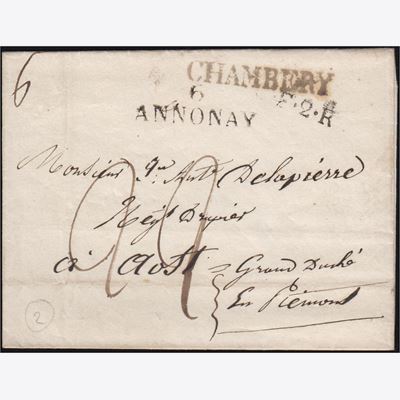 6
CHAMBERY
6
F.2.R
ANNONAY
Monsieur Jn Ante Delapierre
Negt Drapier
à Aost
Grand Duché
En Piémont
2